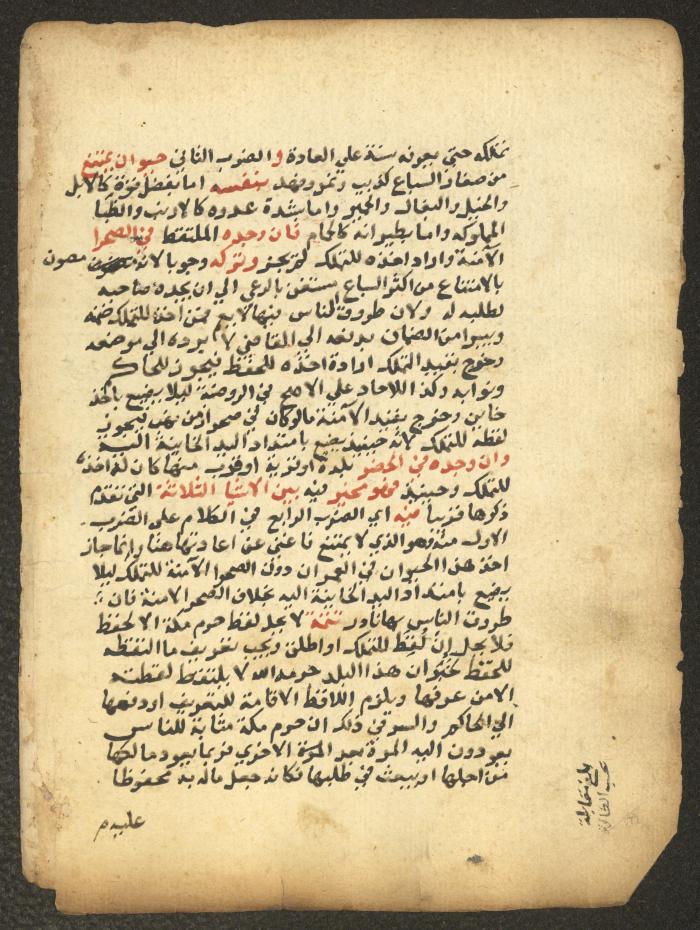 تملكه حتى يعرفه سنة علي العادة والضرب الثاني حيوان يمتنع
من صغار السباع كذيب ونمر وفهد بنفسه اما بفضل قوة كالابل
والخيل والبغال والحمير واما بشدة عدوه كالارنب والظبا
المملوكه واما بطيرانه كالحمام فان وجده الملتقط في الصحرا
الآمنة واراد اخذه للتملك لم يجز وتركه وجوبا لانه مصون
بالامتناع من اكثر السباع مستغن بالرعي الي ان يجده صاحبه
لطلبه له ولان طروق الناس فيها لا يعم فمن اخذه للتملك ضمنه
ويبرا من الضمان بدفعه الي القاضي لا برده الي موضعه
وخرج بقيد التملك ارادة اخذه للحفظ فيجوز للحاكم
ونوابه وكذا للاحاد علي الاصح في الروضة ليلا يضيع باخذ
خاين وخرج بقيد الآمنة مالو كان في صحرا زمن نهب فيجوز
لقطه للتملك لانه حينيذ يضيع بامتداد اليد الخاينة اليه
وان وجده في الحضر ببلدة او قرية او قريب منها كان له اخذه
للتملك وحينيذ فهو مخير فيه بين الاشيا الثلاثة التي تقدم
ذكرها قريبا فيه اي الضرب الرابع في الكلام علي الضرب
الاول منه وهو الذي لا يمتنع فاغني عن اعادتها هنا وانما جاز
اخذ هذا الحيوان في العمران دون الصحرا الآمنة للتملك ليلا
يضيع بامتداد اليد الخاينة اليه بخلاف الصحرا الامنة فان
طروق الناس بها نادر تتمة لا يحل لقط حرم مكة الا لحفظ
فلا يحل ان لقط للتملك او اطلق ويجب تعريف ما التقطه
للحفظ لخبر ان هذا البلد حرمه الله لا يلتقط لقطته
الا من عرفها ويلزم اللاقط الاقامة للتعريف او دفعها
الي الحاكم والسر في ذلك ان حرم مكة مثابة للناس
يعودون اليه المرة بعد المرة الاخري فربما يعود مالكها
من اجلها او يبعث في طلبها فكانه جعل ماله به محفوظا
عليه م
بلغ مقابلة